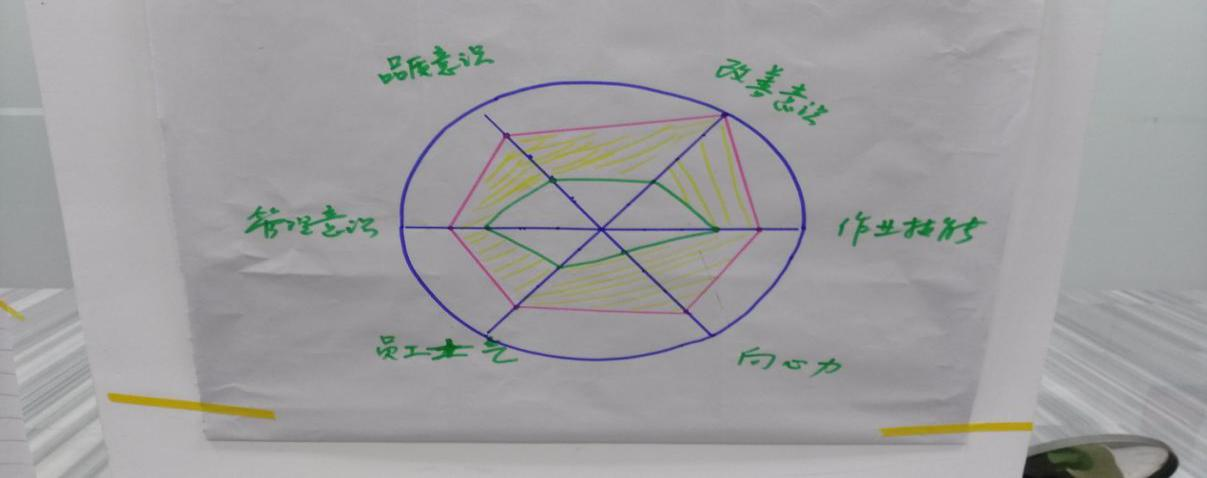 品质意识
改善意识
管理意识
作业技能
员工士气
向心力